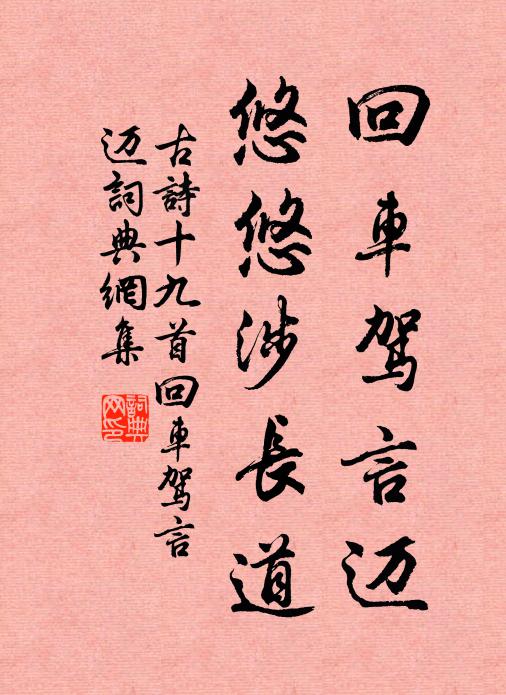 回車駕言迈
悠悠涉長道
古詩十九首回車駕言
迈詞典網集
詞典网印